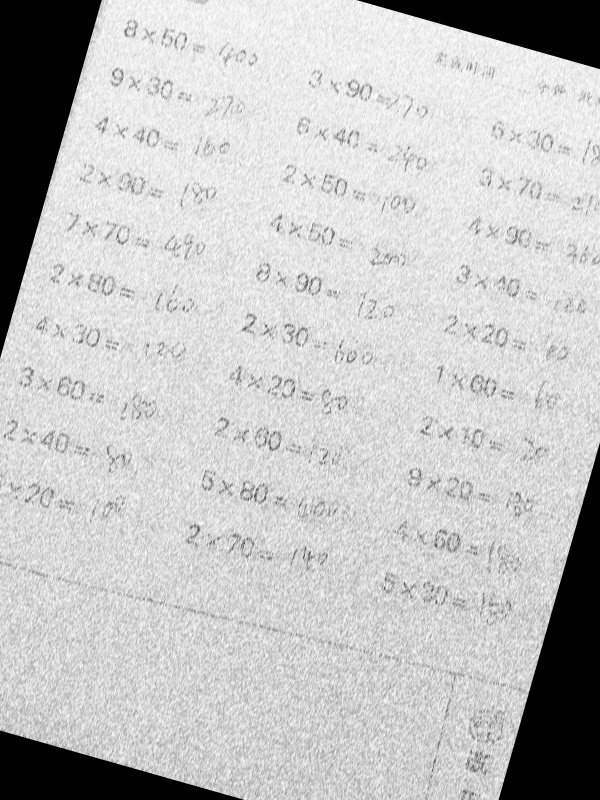 8×50= 400
9×30= 270
4×40= 160
2×90= 180
7×70= 490
2×80= 160
4×30= 120
3×60= 180
2×40= 80
×20= 100
3×90=270
6×40= 240
2×50= 100
4×50= 200
8×90= 120
2×30= 600
4×20= 80
2×60= 120
5×80= 400
2×70= 140
6×30= 18
3×70= 21
4×90= 36
3×40= 120
2×20= 40
1×60= 60
2×10= 20
9×20= 180
4×60= 180
5×30= 150